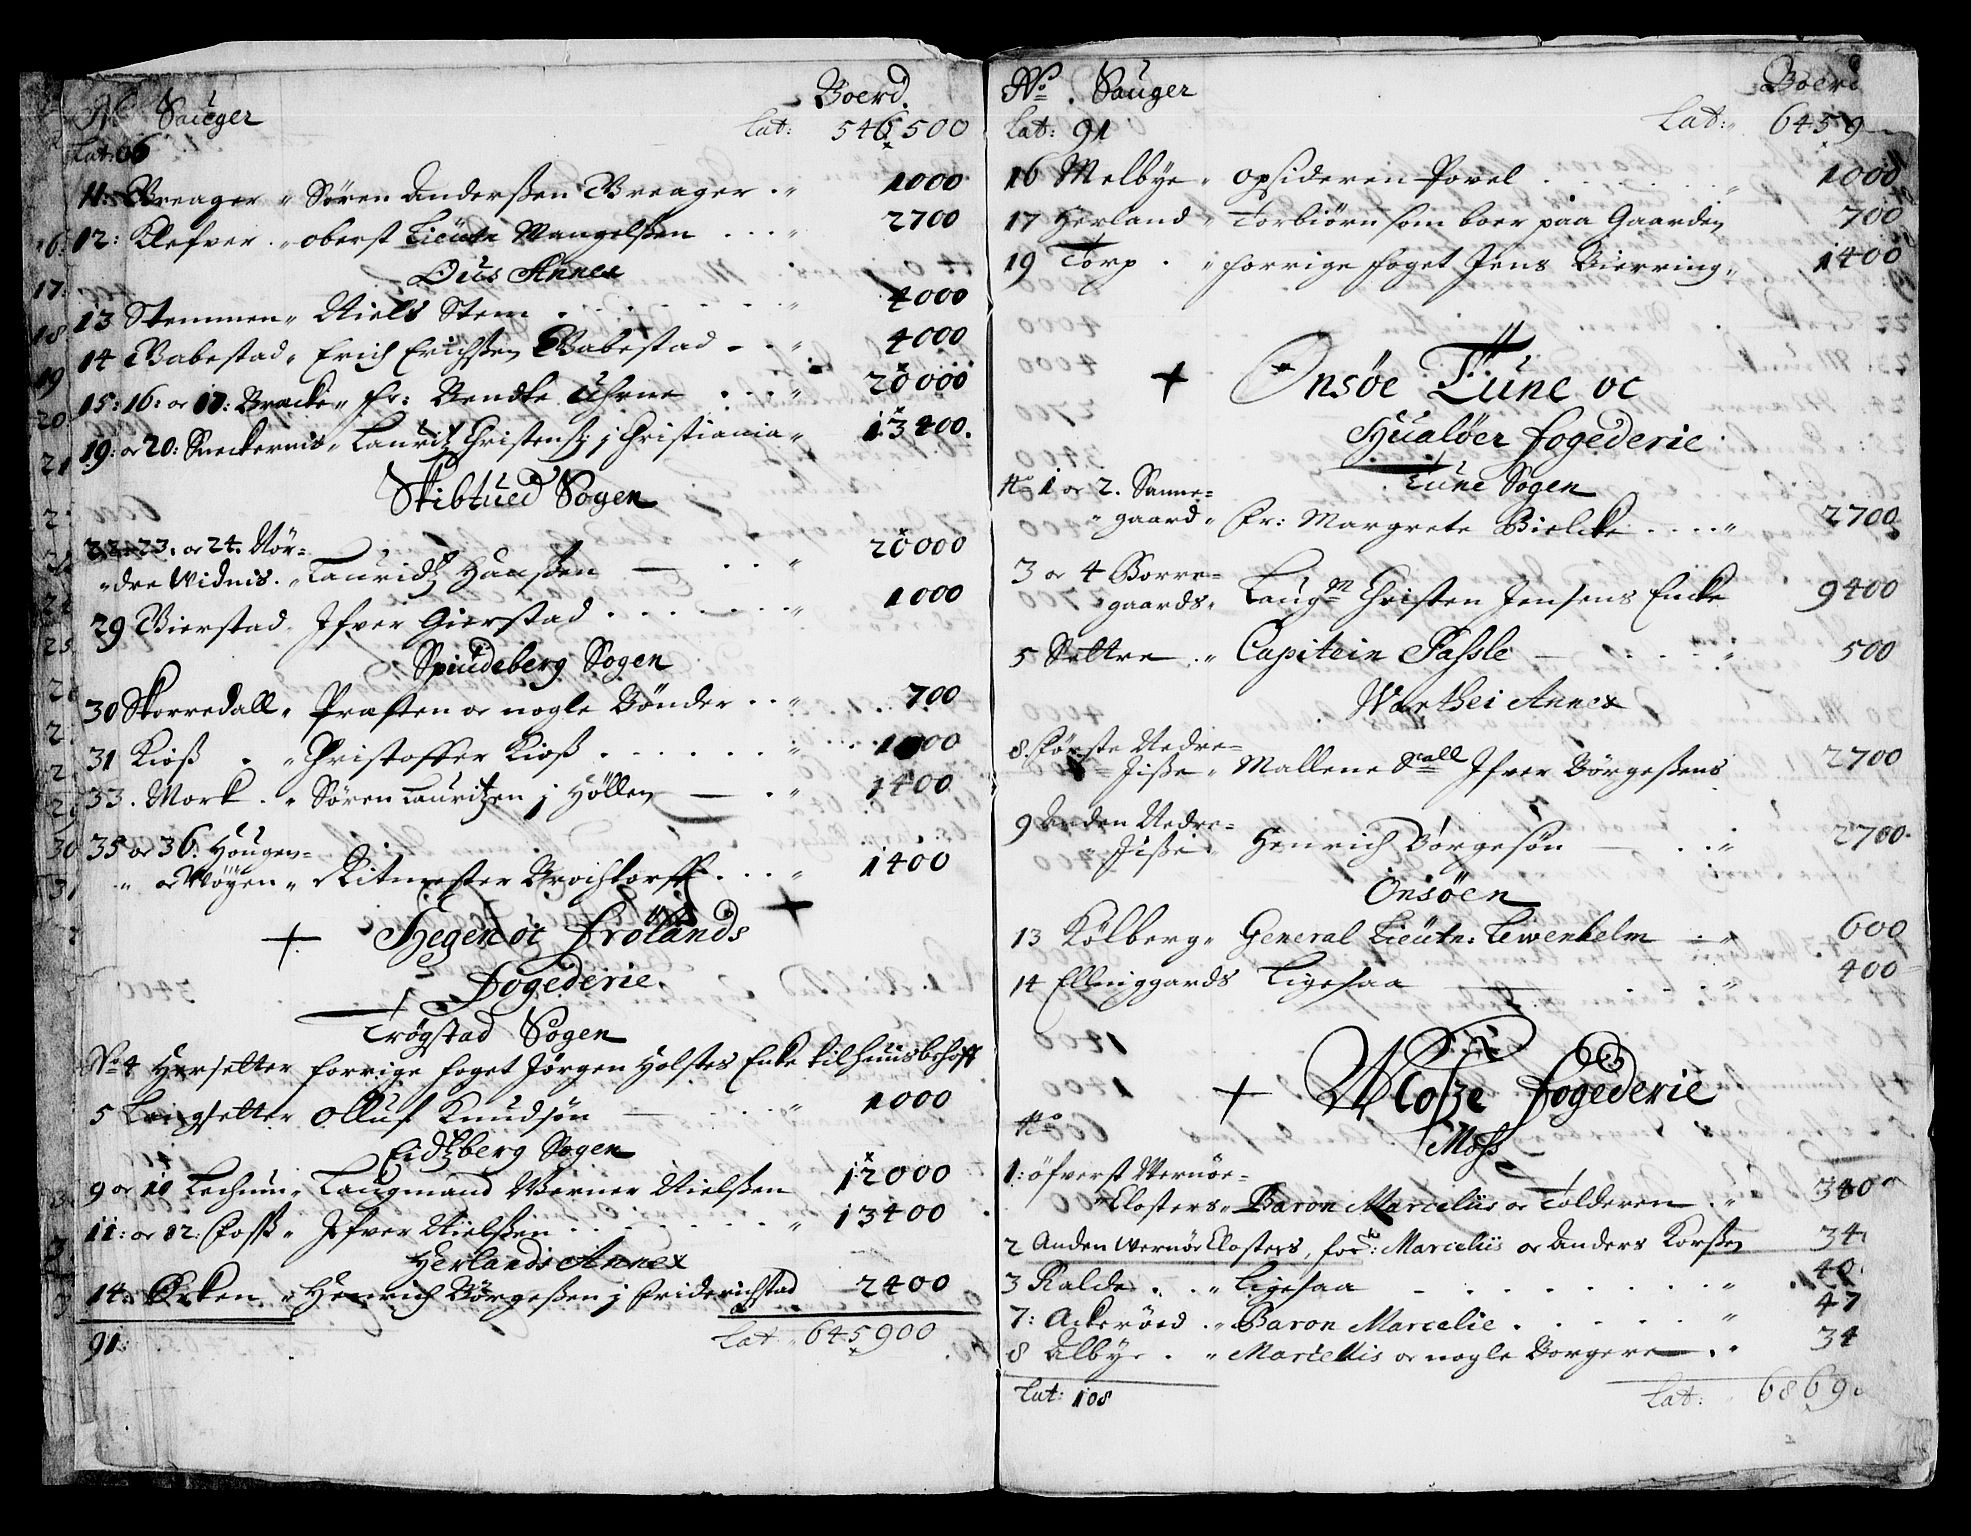 No Sauger Boerd.
Lat: 66 Lat: 546500
11: Breager „ Sören Anderßen Breager . „ 1000
12: Klefver . „ oberst Lieutn Mangelßen . . . „ 2700
Ous Annex
13 Stemmen „ Niels Stem . . . . „ 4000
14 Babestad „ Erich Erichßen Babestad – . „ 4000
15: 16: oc 17: Bracke „ Fr: Bendte Uhrne . . . „ 20000
19: oc 20: Sneckernis „ Lauritz Christens: j Christiania „ 13400.
Skibtued Sogen
22. 23. oc 24. Nör=
„ dre Widnis. „ Lauridtz Hanßen — . . „ 20000
29 Bierstad. Ifver Gierstad . . . . . . „ 1000
Spiudeberg Sogen
30 Skorredall „ Præsten oc nogle Bönder . . „ 700
31 Kioß . „ Christoffer Kioß . . . . . „ 1000
33. Mork . „ Sören Lauritzen j Höllen — . „ 1400
35 oc 36. Hougen=
„ oc Möyen „ Ritmester Brochtorff . . . „ 1400
+ Hegen oc Frölands +
Fogederie.
Trögstad Sogen
No 4 Herselter forrige foget Jörgen Holstes Encke til huusbehoff
5 Langselter Olluf Knudsön — . . . „ 1000
Eidtzberg Sogen
9 oc 10 Lechum „ Laugmand Werner Nielßen 12000
11: oc 12: Foss „ Ifver Nielßen . . . . . . „ 13400
Herlands Annex
14: Örken „ Henrich Börgeßen j Friderichstad 2400
91: Lat „ 645900
No . Sauger Boerd
Lat: 91 Lat: „ 6459
16 Melbye „ opsideren Povel . . . . . „ 1000
17 Herland „ Torbiörn som boer paa Gaarden 700
19 Torp . „ forrige foget Jens Bierring „ 1400
+ Onsöe Tune oc
Hualöer fogederie
Tune Sogen
No 1 oc 2. Sanne=
„ gaard „ Fr: Margrete Bielcke . . . . „ 2700
3 oc 4 Borre=
„ gaards „ Laugm Christen Jensens Encke 9400
5 Settre . „ Capitein Passle — . . . „ 500
Warthei Annex
8. störste Nedre=
Jiße „ Mallene Sall Ifver Börgeßens 2700
9 Anden Nedre=
„ Jiße „ Henrich Börgesön — . . „ 2700.
Onsöen
13 Kölberg „ General Lieutn: Lewenhelm – . „ 600
14 Ellinggards Ligesaa — . . . „ 400
+ Motze fogederie
No
Moss
1: öfverst Wernöe=
„ Closters „ Baron Marcelius oc Tolderen . „ 3400
2 Anden Wernöe Closters, forch: Marcelis oc Anders Korßen 34
3 Ralde . . „ Ligesaa – . . . . . „ 40
7: Ackeröed . „ Baron Marcelie . . . . . „ 47
8 Albye . „ Marcellis oc nogle Borgere — . „ 34
Lat: 108 Lat: 6869